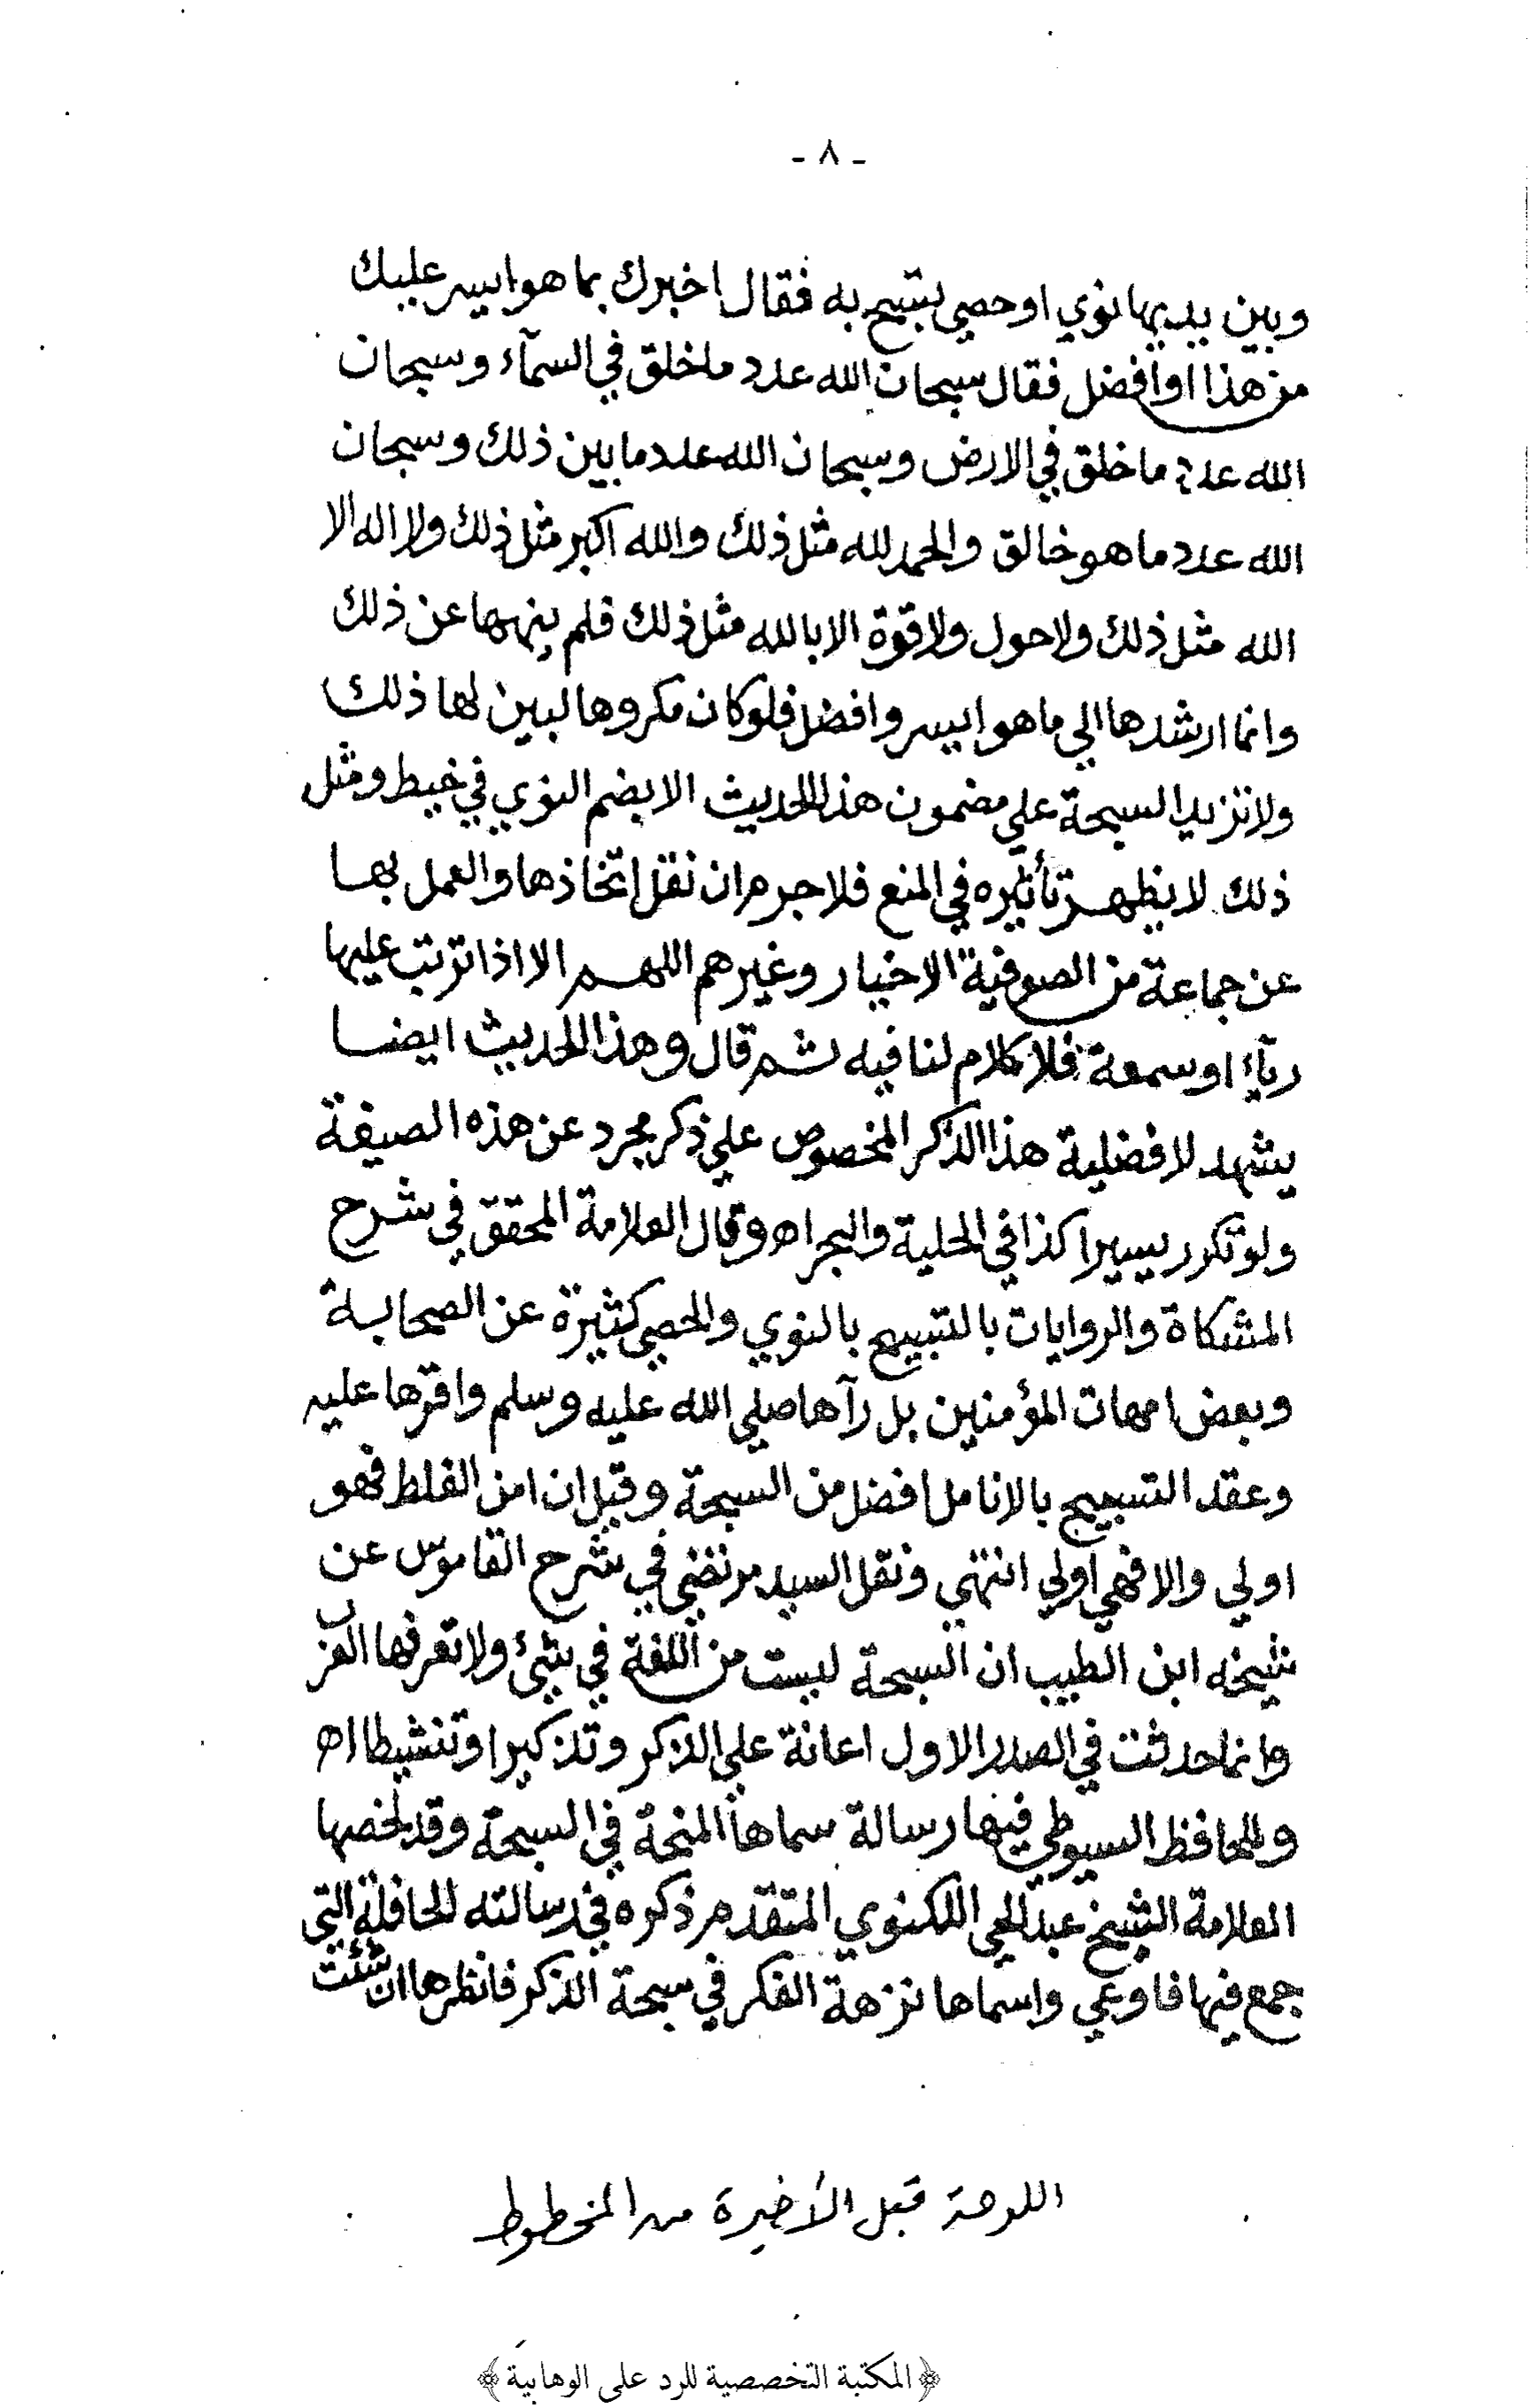 - ٨ -
وبين يديها نوي او حصي تسبح به فقال اخبرك بما هو ايسر عليك
من هذا او افضل فقال سبحان الله عدد ما خلق في السمآء وسبحان
الله عدد ما خلق في الارض وسبحان الله عدد ما بين ذلك وسبحان
الله عدد ما هو خالق والحمد لله مثل ذلك والله اكبر مثل ذلك ولا اله الا
الله مثل ذلك ولا حول ولا قوة الا بالله مثل ذلك فلم ينهها عن ذلك
وانما ارشدها الي ما هو ايسر وافضل فلو كان مكروها لبين لها ذلك
ولا تزيد السبحة علي مضمون هذا الحديث الا بضم النوي في خيط ومثل
ذلك لا يظهر تأثيره في المنع فلا جرم ان نقل اتخاذها والعمل بها
عن جماعة من الصوفية الاخيار وغيرهم اللهم الا اذا ترتب عليها
ريآء او سمعة فلا كلام لنا فيه ثم قال وهذا الحديث ايضا
يشهد لافضلية هذا الذكر المخصوص علي ذكر مجرد عن هذه الصيغة
ولو تكرر يسيرا كذا في الحلية والبحر اه وقال العلامة المحقق في شرح
المشكاة والروايات بالتسبيح بالنوي والحصي كثيرة عن الصحابة
وبعض امهات المؤمنين بل رآها صلي الله عليه وسلم واقرها عليه
وعقد التسبيح بالانامل افضل من السبحة وقيل ان امن الغلط فهو
اولي والا فهي اولي انتهي ونقل السيد مرتضي في شرح القاموس عن
شيخه ابن الطيب ان السبحة ليست من اللغة في شيئ ولا تعرفها العرب
وانما حدثت في الصدر الاول اعانة علي الذكر وتذكيرا وتنشيطا اه
وللحافظ السيوطي فيها رسالة سماها المنحة في السبحة وقد لخصها
العلامة الشيخ عبد الحي اللكنوي المتقدم ذكره في رسالته الحافلة التي
جمع فيها فاوعي واسماها نزهة الفكر في سبحة الذكر فانظرها ان شئت
اللوحة قبل الأخيرة من المخطوط
﴿المكتبة التخصصية للرد على الوهابية﴾